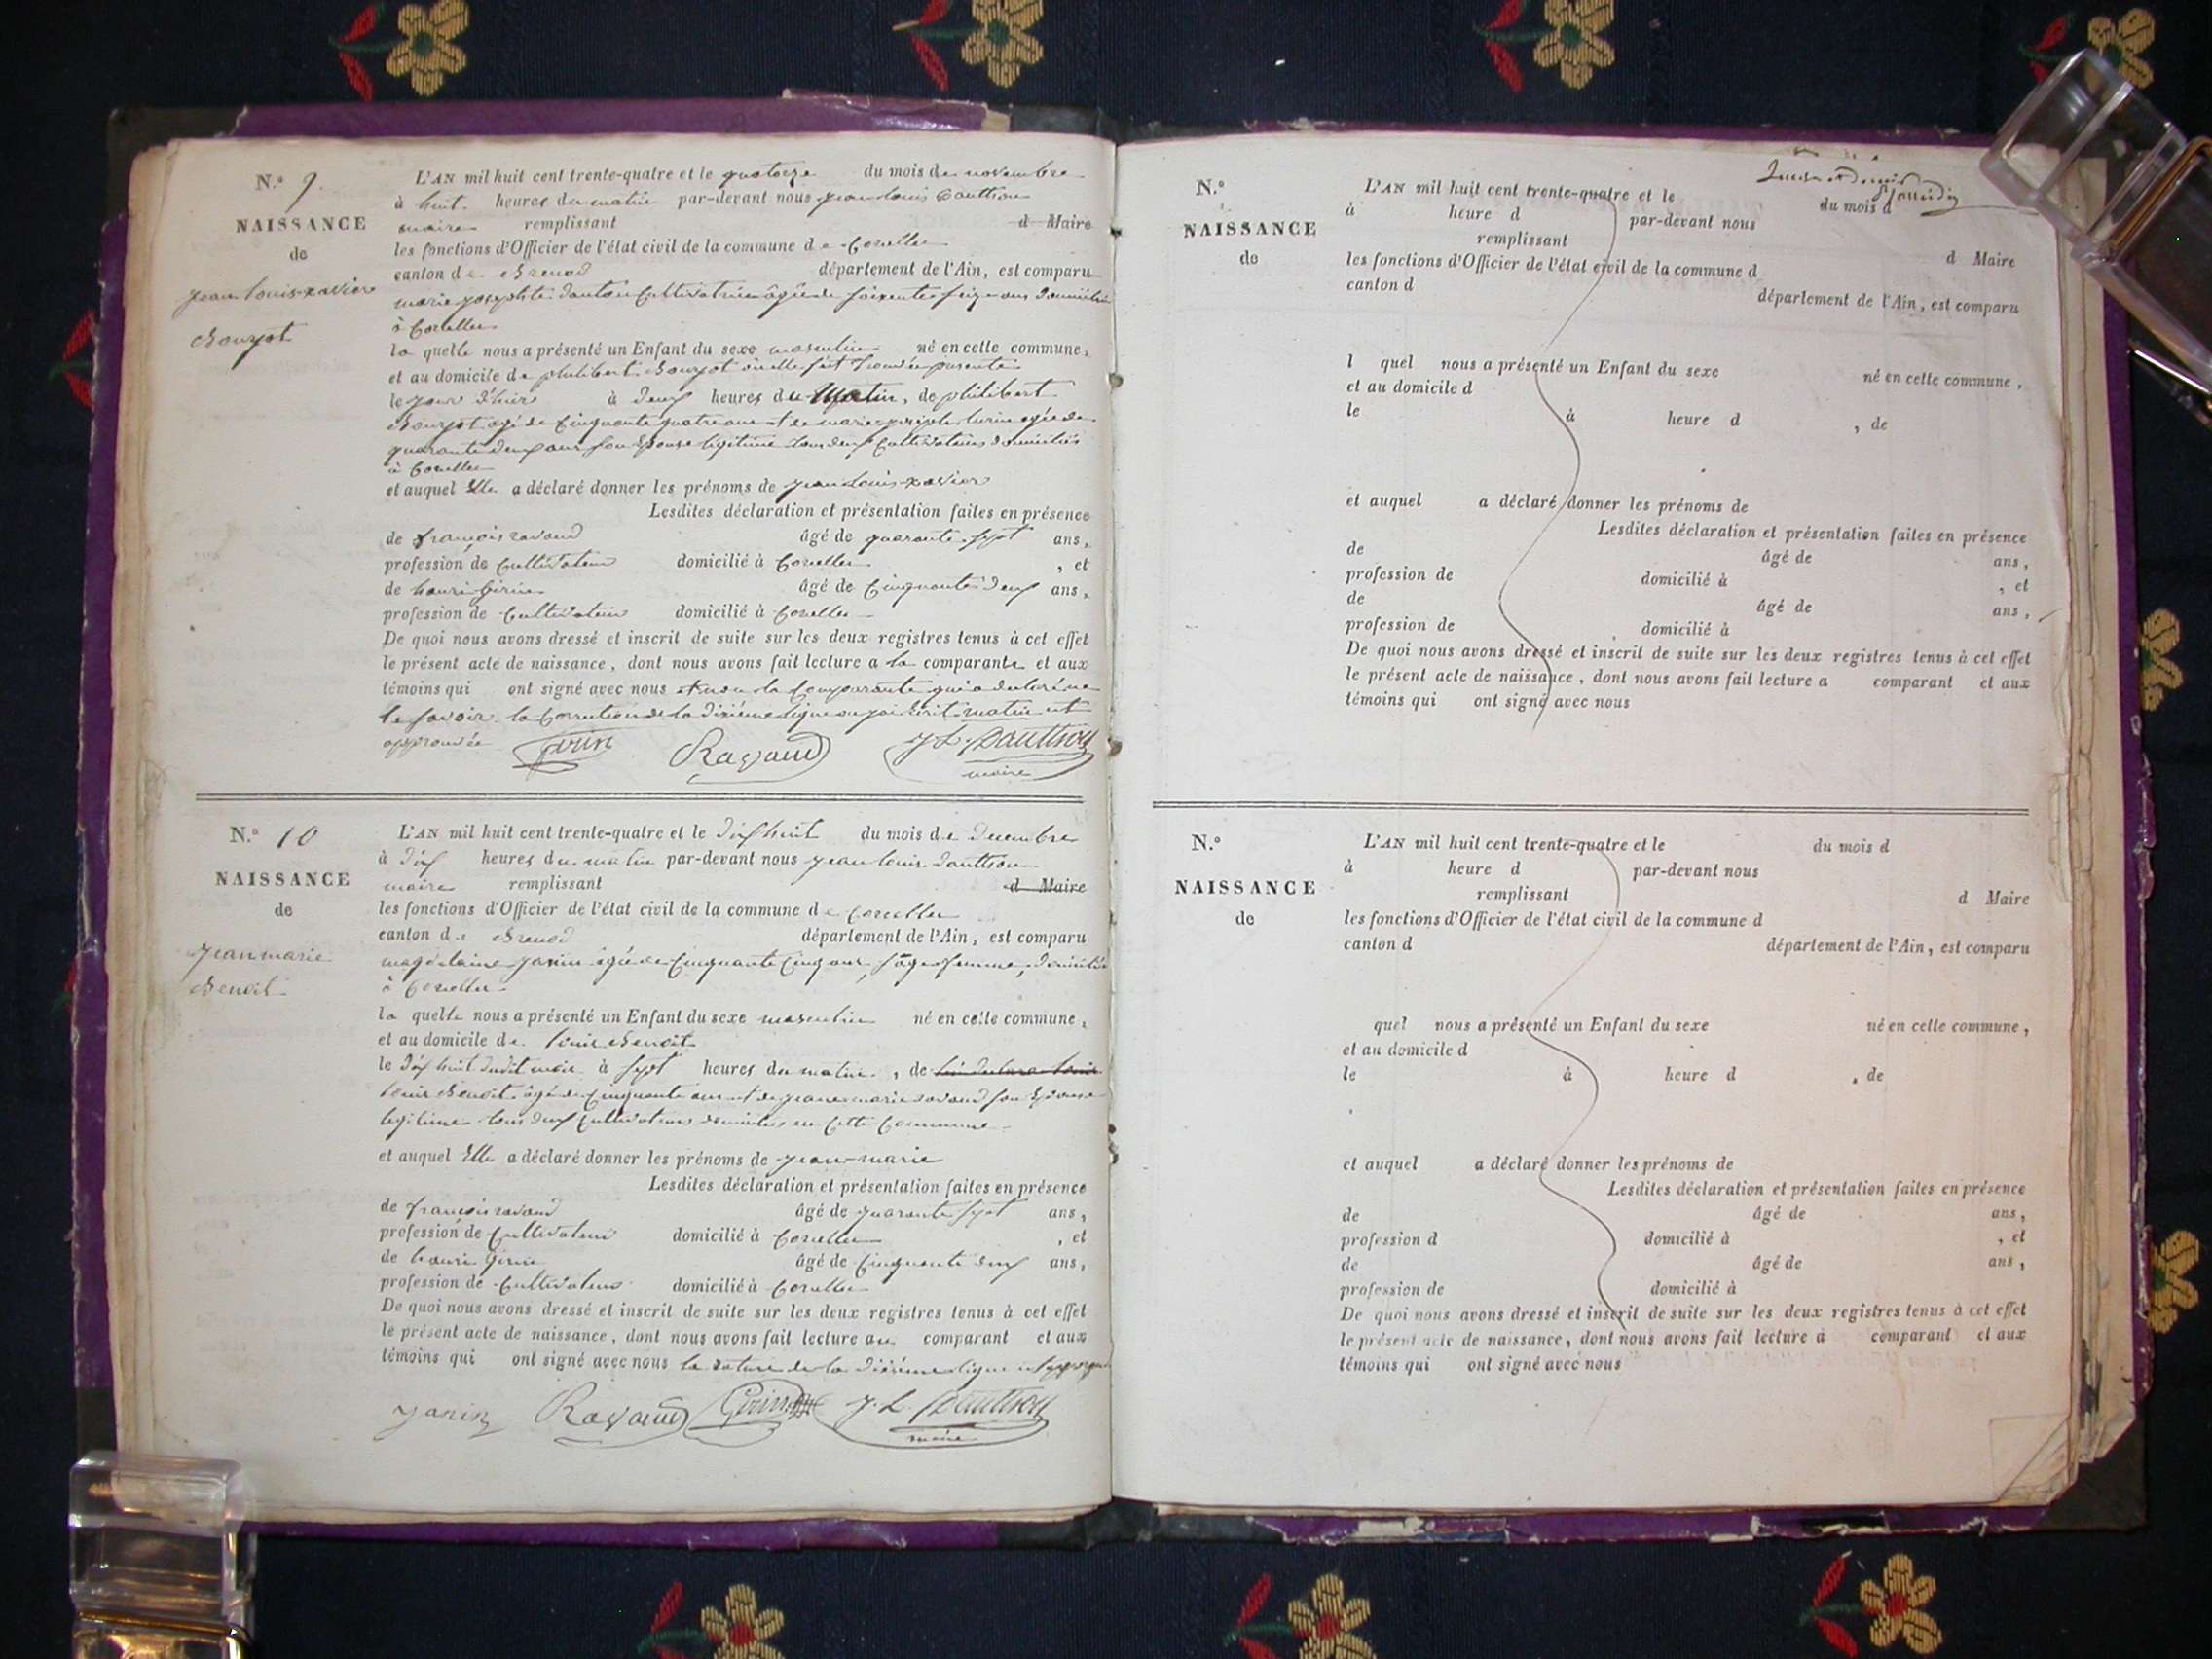 N.° 9.
NAISSANCE
de
jean louis xavier
Bourjot
L'AN mil huit cent trente-quatre et le quatorze du mois de novembre
à huit heures du matin par-devant nous jean louis Dauttion
maire remplissant d Maire
les fonctions d'Officier de l'état civil de la commune de Corcelles
canton de Brenod département de l'Ain, est comparu
marie josephte cultivatrice âgée de soixante seize ans domiciliée
à Corcelles
la quelle nous a présenté un Enfant du sexe masculin né en cette commune,
et au domicile de philibert Bourjot où elle s'est trouvée présente
le jour d'hier à deux heures du Matin, de philibert
Bourjot âgé de cinquante quatre ans et de marie josephte agée de
quarante deux ans son épouse légitime tous deux cultivateurs domiciliés
à Corcelles
et auquel Elle a déclaré donner les prénoms de jean louis xavier
Lesdites déclaration et présentation faites en présence
de françois ravaud âgé de quarante sept ans,
profession de cultivateur domicilié à Corcelles , et
de henri Girin âgé de cinquante deux ans,
profession de cultivateur domicilié à Corcelles
De quoi nous avons dressé et inscrit de suite sur les deux registres tenus à cet effet
le présent acte de naissance, dont nous avons fait lecture a la comparante et aux
témoins qui ont signé avec nous et non la comparante qui a déclaré ne
le savoir. la correction de la dixième ligne ou j'ai écrit matin est
approuvée Girin Ravaud J L Dauttion
maire
N.° 10
NAISSANCE
de
jean marie
Benoit
L'AN mil huit cent trente-quatre et le dix huit du mois de decembre
à dix heures du matin par-devant nous jean louis Dauttion
maire remplissant d Maire
les fonctions d'Officier de l'état civil de la commune de Corcelles
canton de Brenod département de l'Ain, est comparu
magdelaine janin agée de cinquante cinq ans, sage femme, domiciliée
à Corcelles
la quelle nous a présenté un Enfant du sexe masculin né en cette commune,
et au domicile de louis Benoit
le dix huit dudit mois à sept heures du matin, de
louis Benoit âgé de cinquante ans et de jeane marie ravaud son épouse
legitime tous deux cultivateurs domiciliés en cette commune
et auquel Elle a déclaré donner les prénoms de jean-marie
Lesdites déclaration et présentation faites en présence
de françois ravaud âgé de quarante sept ans,
profession de cultivateur domicilié à Corcelles , et
de henri Girin âgé de cinquante deux ans,
profession de cultivateur domicilié à Corcelles
De quoi nous avons dressé et inscrit de suite sur les deux registres tenus à cet effet
le présent acte de naissance, dont nous avons fait lecture au comparant et aux
témoins qui ont signé avec nous la rature de la dixième ligne
janin Ravaud Girin J. L. Dauttion
maire
N.°
NAISSANCE
de
L'AN mil huit cent trente-quatre et le du mois d
à heure d par-devant nous
remplissant d Maire
les fonctions d'Officier de l'état civil de la commune d
canton d département de l'Ain, est comparu
l quel nous a présenté un Enfant du sexe né en cette commune,
et au domicile d
le à heure d , de
et auquel a déclaré donner les prénoms de
Lesdites déclaration et présentation faites en présence
de âgé de ans,
profession de domicilié à , et
de âgé de ans,
profession de domicilié à
De quoi nous avons dressé et inscrit de suite sur les deux registres tenus à cet effet
le présent acte de naissance, dont nous avons fait lecture a comparant et aux
témoins qui ont signé avec nous
N.°
NAISSANCE
de
L'AN mil huit cent trente-quatre et le du mois d
à heure d par-devant nous
remplissant d Maire
les fonctions d'Officier de l'état civil de la commune d
canton d département de l'Ain, est comparu
quel nous a présenté un Enfant du sexe né en cette commune,
et au domicile d
le à heure d , de
et auquel a déclaré donner les prénoms de
Lesdites déclaration et présentation faites en présence
de âgé de ans,
profession d domicilié à , et
de âgé de ans,
profession de domicilié à
De quoi nous avons dressé et inscrit de suite sur les deux registres tenus à cet effet
le présent acte de naissance, dont nous avons fait lecture à comparant et aux
témoins qui ont signé avec nous